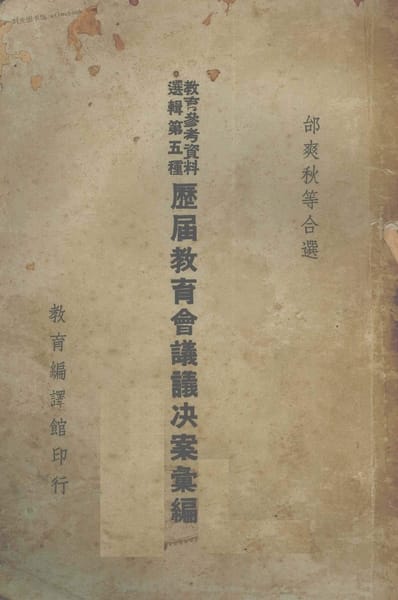 邰爽秋等合選
教育參考資料
選輯第五種
歷屆教育會議議决案彙編
教育編譯館印行